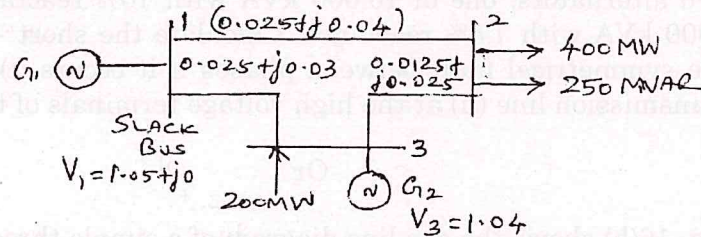 1 (0.025+j0.04) 2
G1 0.025+j0.03 0.0125+ 400 MW
j0.025 250 MVAR
SLACK
BUS
3
V1 = 1.05+j0
200MW G2
V3=1.04